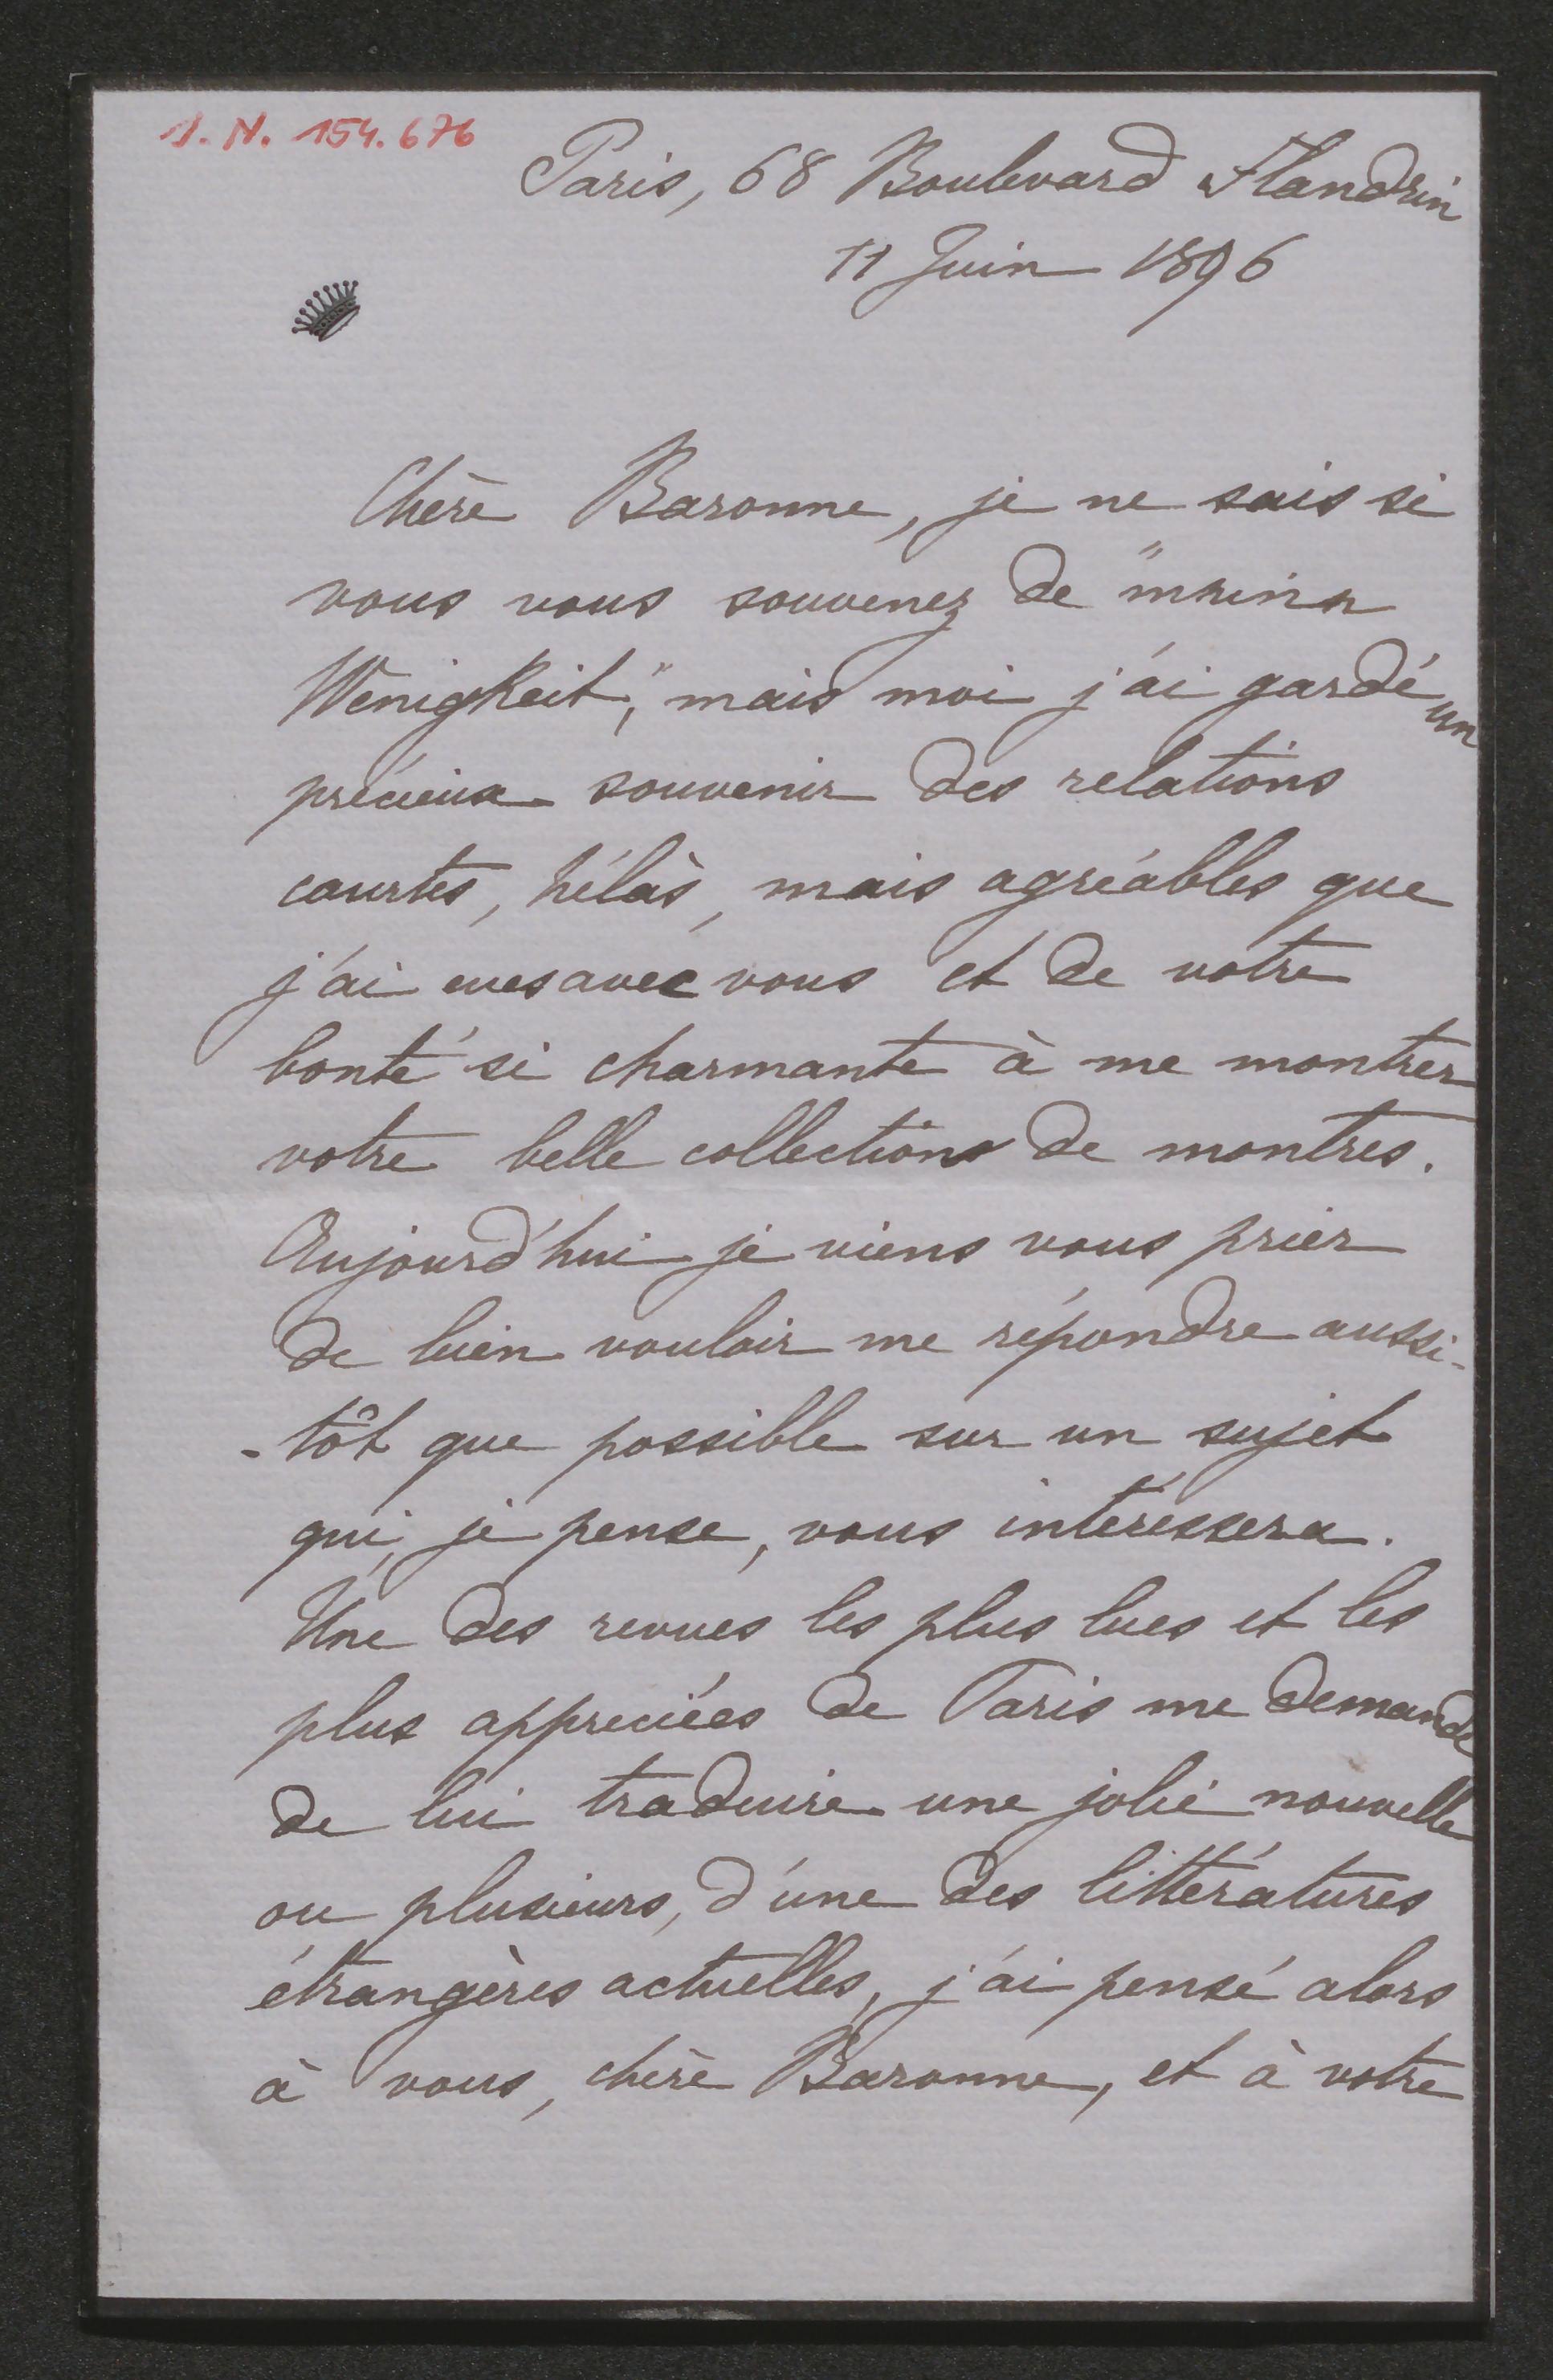 I. N. 154.676
Paris, 68 Boulevard Flandrin
11 Juin 1896
Chère Baronne, je ne sais si
vous vous souvenez de "meine
Wenigkeit," mais moi j'ai gardé un
précieux souvenir des relations
courtes, hélàs, mais agréables que
j'ai eues avec vous et de votre
bonté si charmante à me montrer
votre belle collection de montres.
Aujourd'hui je viens vous prier
de bien vouloir me répondre aussi-
-tôt que possible sur un sujet
qui, je pense, vous intéressera.
Une des revues les plus lues et les
plus appreciées de Paris me demande
de lui traduire une jolie nouvelle
ou plusieurs, d'une des littératures
étrangères actuelles, j'ai pensé alors
à vous, chère Baronne, et à votre